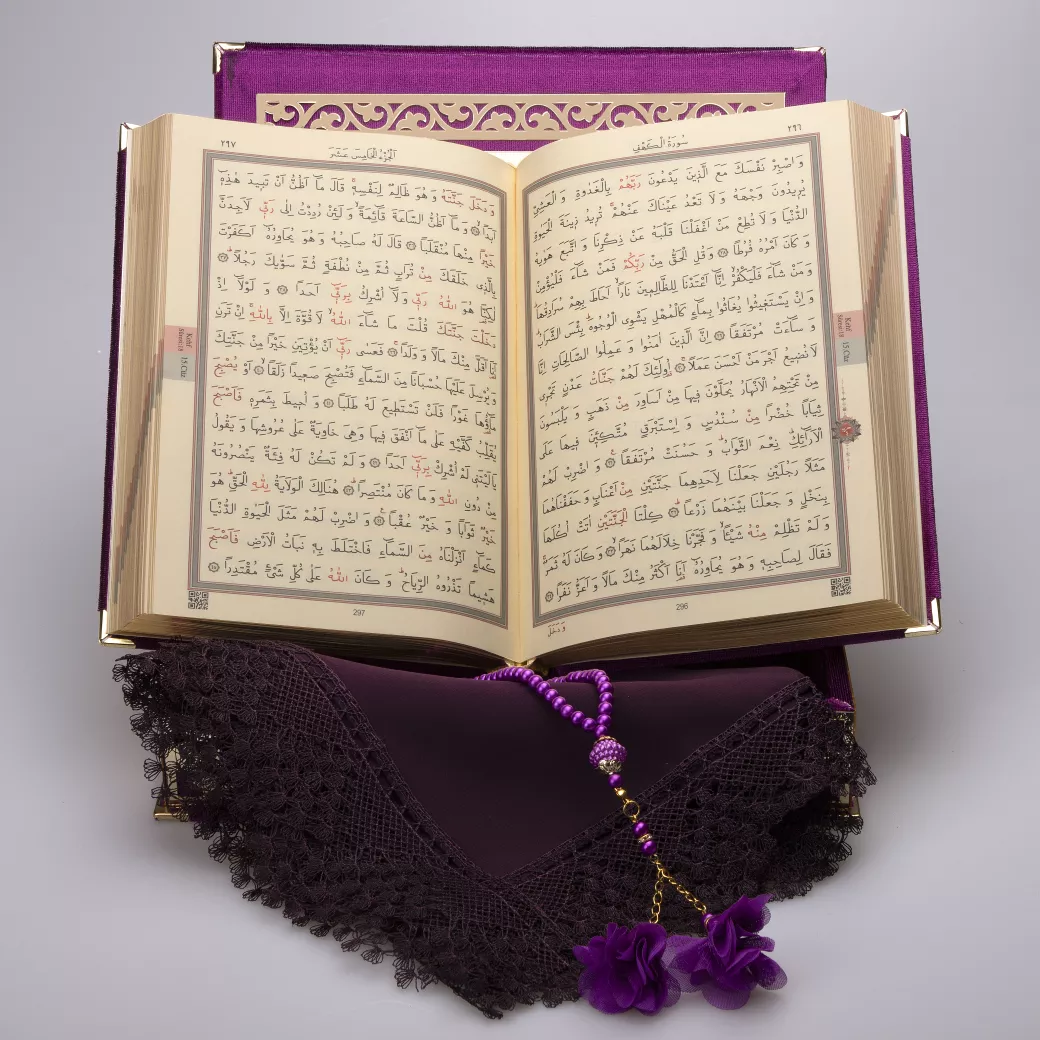 ٢٩٦
سُورَةُ الْكَهْفِ
وَاصْبِرْ نَفْسَكَ مَعَ الَّذِينَ يَدْعُونَ رَبَّهُمْ بِالْغَدٰوةِ وَالْعَشِيِّ
يُرِيدُونَ وَجْهَهُ وَلَا تَعْدُ عَيْنَاكَ عَنْهُمْۚ تُرِيدُ زِينَةَ الْحَيٰوةِ
الدُّنْيَاۚ وَلَا تُطِعْ مَنْ اَغْفَلْنَا قَلْبَهُ عَنْ ذِكْرِنَا وَاتَّبَعَ هَوٰيهُ
وَكَانَ اَمْرُهُ فُرُطًا ۞ وَقُلِ الْحَقُّ مِنْ رَبِّكُمْ فَمَنْ شَٓاءَ فَلْيُؤْمِنْ
وَمَنْ شَٓاءَ فَلْيَكْفُرْۙ اِنَّٓا اَعْتَدْنَا لِلظَّالِمِينَ نَارًاۙ اَحَاطَ بِهِمْ سُرَادِقُهَاۜ
وَاِنْ يَسْتَغِيثُوا يُغَاثُوا بِمَٓاءٍ كَالْمُهْلِ يَشْوِي الْوُجُوهَۜ بِئْسَ الشَّرَابُۜ
وَسَٓاءَتْ مُرْتَفَقًا ۞ اِنَّ الَّذِينَ اٰمَنُوا وَعَمِلُوا الصَّالِحَاتِ اِنَّا
لَا نُضِيعُ اَجْرَ مَنْ اَحْسَنَ عَمَلًاۚ ۞ اُو۬لٰٓئِكَ لَهُمْ جَنَّاتُ عَدْنٍ تَجْرِي
مِنْ تَحْتِهِمُ الْاَنْهَارُ يُحَلَّوْنَ فِيهَا مِنْ اَسَاوِرَ مِنْ ذَهَبٍ وَيَلْبَسُونَ
ثِيَابًا خُضْرًا مِنْ سُنْدُسٍ وَاِسْتَبْرَقٍ مُتَّكِئِينَ فِيهَا عَلَى
الْاَرَٓائِكِۜ نِعْمَ الثَّوَابُۜ وَحَسُنَتْ مُرْتَفَقًا۟ ۞ وَاضْرِبْ لَهُمْ
مَثَلًا رَجُلَيْنِ جَعَلْنَا لِاَحَدِهِمَا جَنَّتَيْنِ مِنْ اَعْنَابٍ وَحَفَفْنَاهُمَا
بِنَخْلٍ وَجَعَلْنَا بَيْنَهُمَا زَرْعًاۜ ۞ كِلْتَا الْجَنَّتَيْنِ اٰتَتْ اُكُلَهَا
وَلَمْ تَظْلِمْ مِنْهُ شَيْـًٔاۙ وَفَجَّرْنَا خِلَالَهُمَا نَهَرًاۙ ۞ وَكَانَ لَهُ ثَمَرٌۚ
فَقَالَ لِصَاحِبِهِ وَهُوَ يُحَاوِرُهُٓ اَنَا۬ اَكْثَرُ مِنْكَ مَالًا وَاَعَزُّ نَفَرًا ۞
وَدَخَلَ
296
Kehf
Sûresi:18
15.Cüz
٢٩٧
اَلْجُزْءُ الْخَامِسَ عَشَرَ
وَدَخَلَ جَنَّتَهُ وَهُوَ ظَالِمٌ لِنَفْسِهِۚ قَالَ مَٓا اَظُنُّ اَنْ تَبِيدَ هٰذِهِٓ
اَبَدًاۙ ۞ وَمَٓا اَظُنُّ السَّاعَةَ قَٓائِمَةًۙ وَلَئِنْ رُدِدْتُ اِلٰى رَبِّي لَاَجِدَنَّ
خَيْرًا مِنْهَا مُنْقَلَبًا ۞ قَالَ لَهُ صَاحِبُهُ وَهُوَ يُحَاوِرُهُٓ اَكَفَرْتَ
بِالَّذِي خَلَقَكَ مِنْ تُرَابٍ ثُمَّ مِنْ نُطْفَةٍ ثُمَّ سَوّٰيكَ رَجُلًاۜ ۞
لٰكِنَّا۬ هُوَ اللّٰهُ رَبِّي وَلَٓا اُشْرِكُ بِرَبِّٓي اَحَدًا ۞ وَلَوْلَٓا اِذْ
دَخَلْتَ جَنَّتَكَ قُلْتَ مَا شَٓاءَ اللّٰهُۙ لَا قُوَّةَ اِلَّا بِاللّٰهِۚ اِنْ تَرَنِ
اَنَا۬ اَقَلَّ مِنْكَ مَالًا وَوَلَدًاۚ ۞ فَعَسٰى رَبِّٓي اَنْ يُؤْتِيَنِ خَيْرًا مِنْ جَنَّتِكَ
وَيُرْسِلَ عَلَيْهَا حُسْبَانًا مِنَ السَّمَٓاءِ فَتُصْبِحَ صَعِيدًا زَلَقًاۙ ۞ اَوْ يُصْبِحَ
مَٓاؤُ۬هَا غَوْرًا فَلَنْ تَسْتَطِيعَ لَهُ طَلَبًا ۞ وَاُحِيطَ بِثَمَرِهِ فَاَصْبَحَ
يُقَلِّبُ كَفَّيْهِ عَلٰى مَٓا اَنْفَقَ فِيهَا وَهِيَ خَاوِيَةٌ عَلٰى عُرُوشِهَا وَيَقُولُ
يَا لَيْتَنِي لَمْ اُشْرِكْ بِرَبِّٓي اَحَدًا ۞ وَلَمْ تَكُنْ لَهُ فِئَةٌ يَنْصُرُونَهُ
مِنْ دُونِ اللّٰهِ وَمَا كَانَ مُنْتَصِرًاۜ ۞ هُنَالِكَ الْوَلَايَةُ لِلّٰهِ الْحَقِّۜ هُوَ
خَيْرٌ ثَوَابًا وَخَيْرٌ عُقْبًا۟ ۞ وَاضْرِبْ لَهُمْ مَثَلَ الْحَيٰوةِ الدُّنْيَا
كَمَٓاءٍ اَنْزَلْنَاهُ مِنَ السَّمَٓاءِ فَاخْتَلَطَ بِهِ نَبَاتُ الْاَرْضِ فَاَصْبَحَ
هَشِيمًا تَذْرُوهُ الرِّيَاحُۜ وَكَانَ اللّٰهُ عَلٰى كُلِّ شَيْءٍ مُقْتَدِرًا ۞
297
Kehf
Sûresi:18
15.Cüz